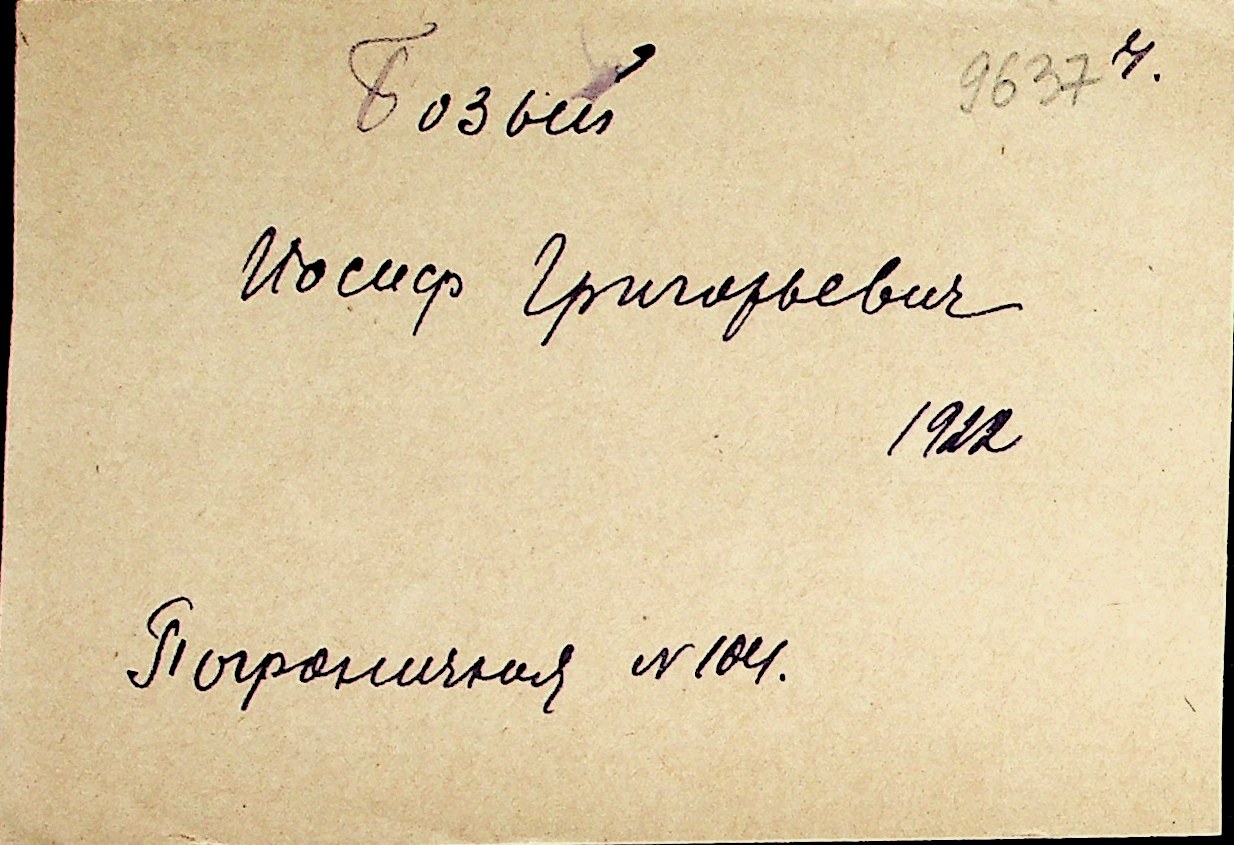 Бозый 9637 ч.
Иосиф Григорьевич
1922
Пограничная N 104.